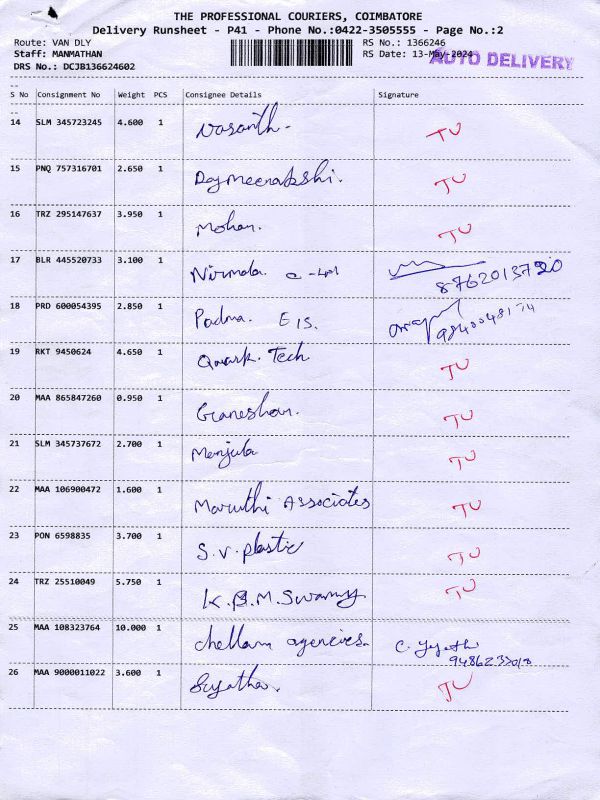 THE PROFESSIONAL COURIERS, COIMBATORE
Delivery Runsheet - P41 - Phone No.:0422-3505555 - Page No.:2
Route: VAN DLY RS No.: 1366246
Staff: MANMATHAN RS Date: 13-May-2024 AUTO DELIVERY
DRS No.: DCJB136624602
--
S No Consignment No Weight PCS Consignee Details Signature
--
14 SLM 345723245 4.600 1 Vasanth- TU
15 PNQ 757316701 2.650 1 Rajmeenakshi. TU
16 TRZ 295147637 3.950 1 Mohan. TU
17 BLR 445520733 3.100 1 Nirmala. 8762013720
18 PRD 600054395 2.850 1 Padma. E IS.
19 RKT 9450624 4.650 1 Quark. Tech TU
20 MAA 865847260 0.950 1 Ganeshan. TU
21 SLM 345737672 2.700 1 Manjula TU
22 MAA 106900472 1.600 1 Maruthi Associates TU
23 PON 6598835 3.700 1 S.V. plastic TU
24 TRZ 25510049 5.750 1 K.B.M. Swamy TU
25 MAA 108323764 10.000 1 chellam agencies-
26 MAA 9000011022 3.600 1 Sujatha. TU